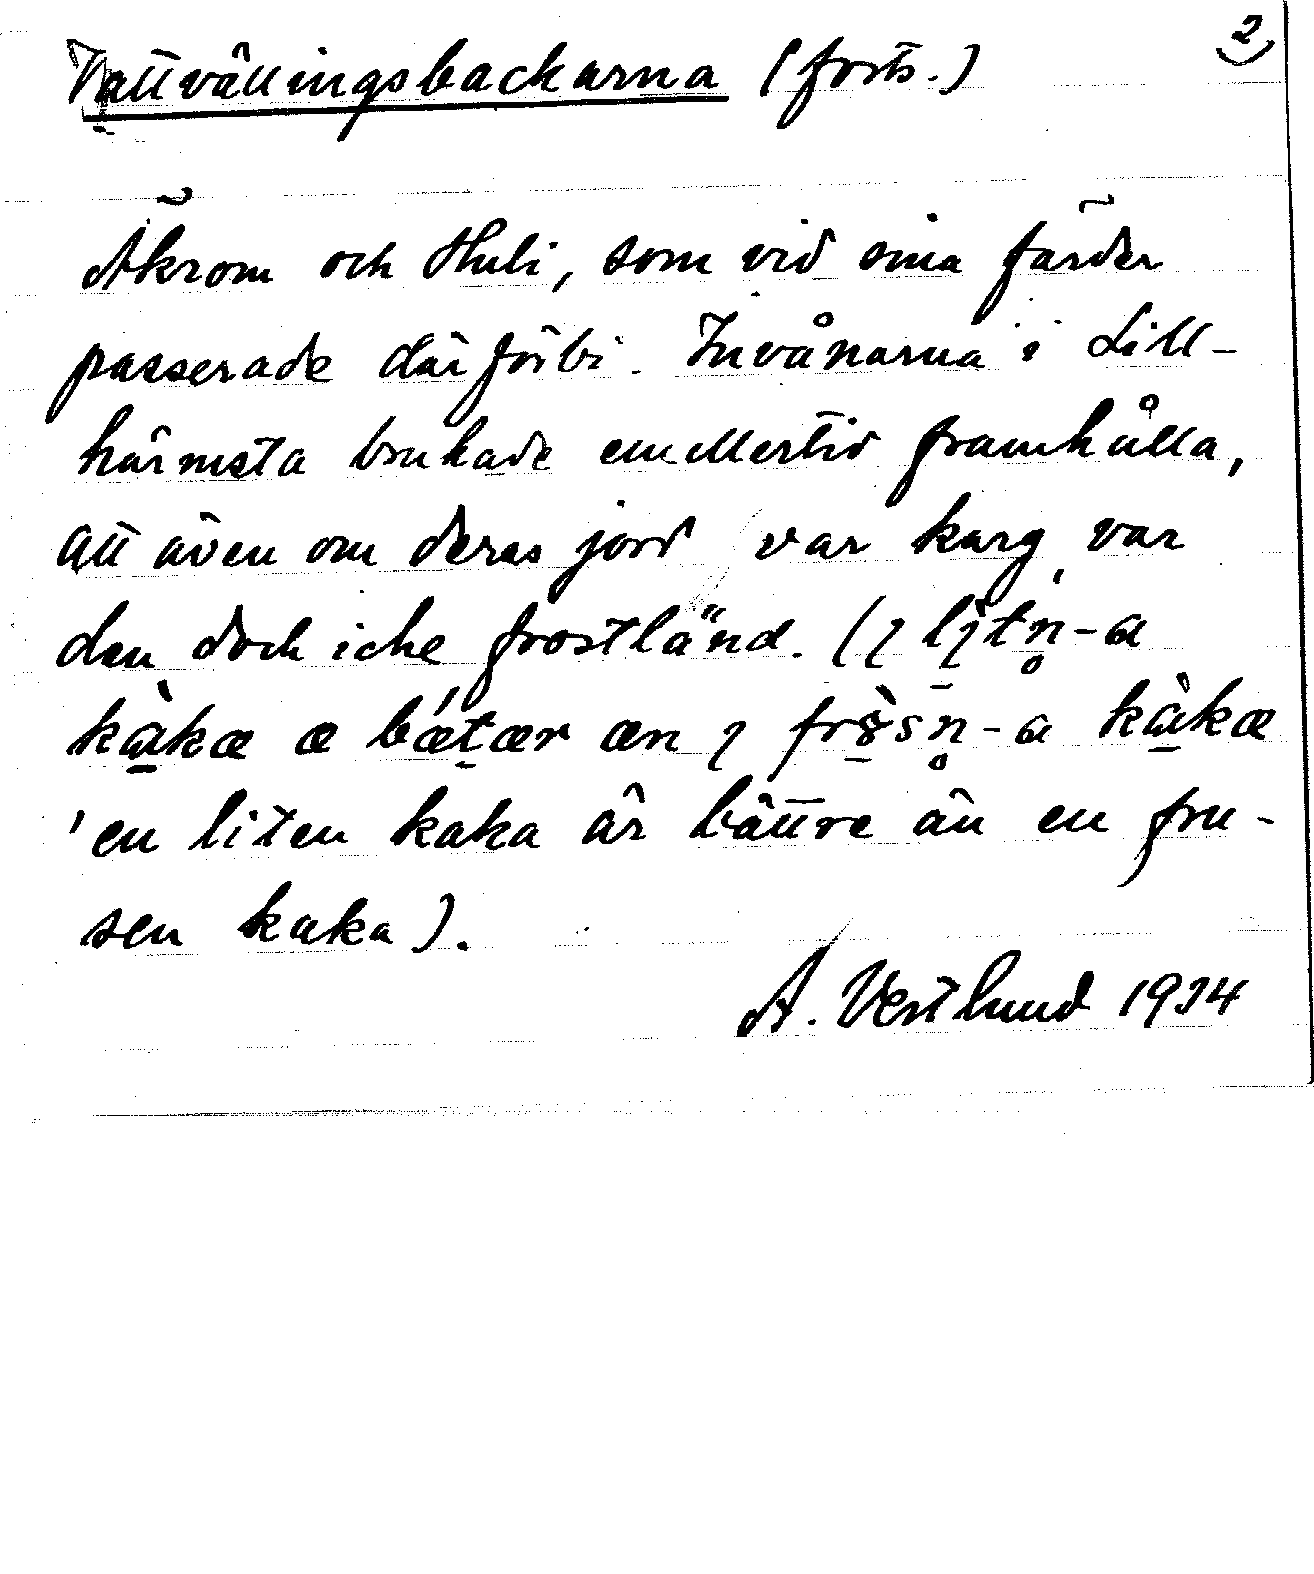 2)
Vattvällingsbackarna (forts.)
Åkrom och Huli, som vid sina färder
passerade där förbi. Invånarna i Lill-
härmsta brukade emellertid framhålla,
att även om deras jord var karg, var
den dock icke frostländ.
kàkæ æ bǽtær æn
kàkæ
'en liten kaka är bättre än en fru-
sen kaka).
A. Vestlund 1934